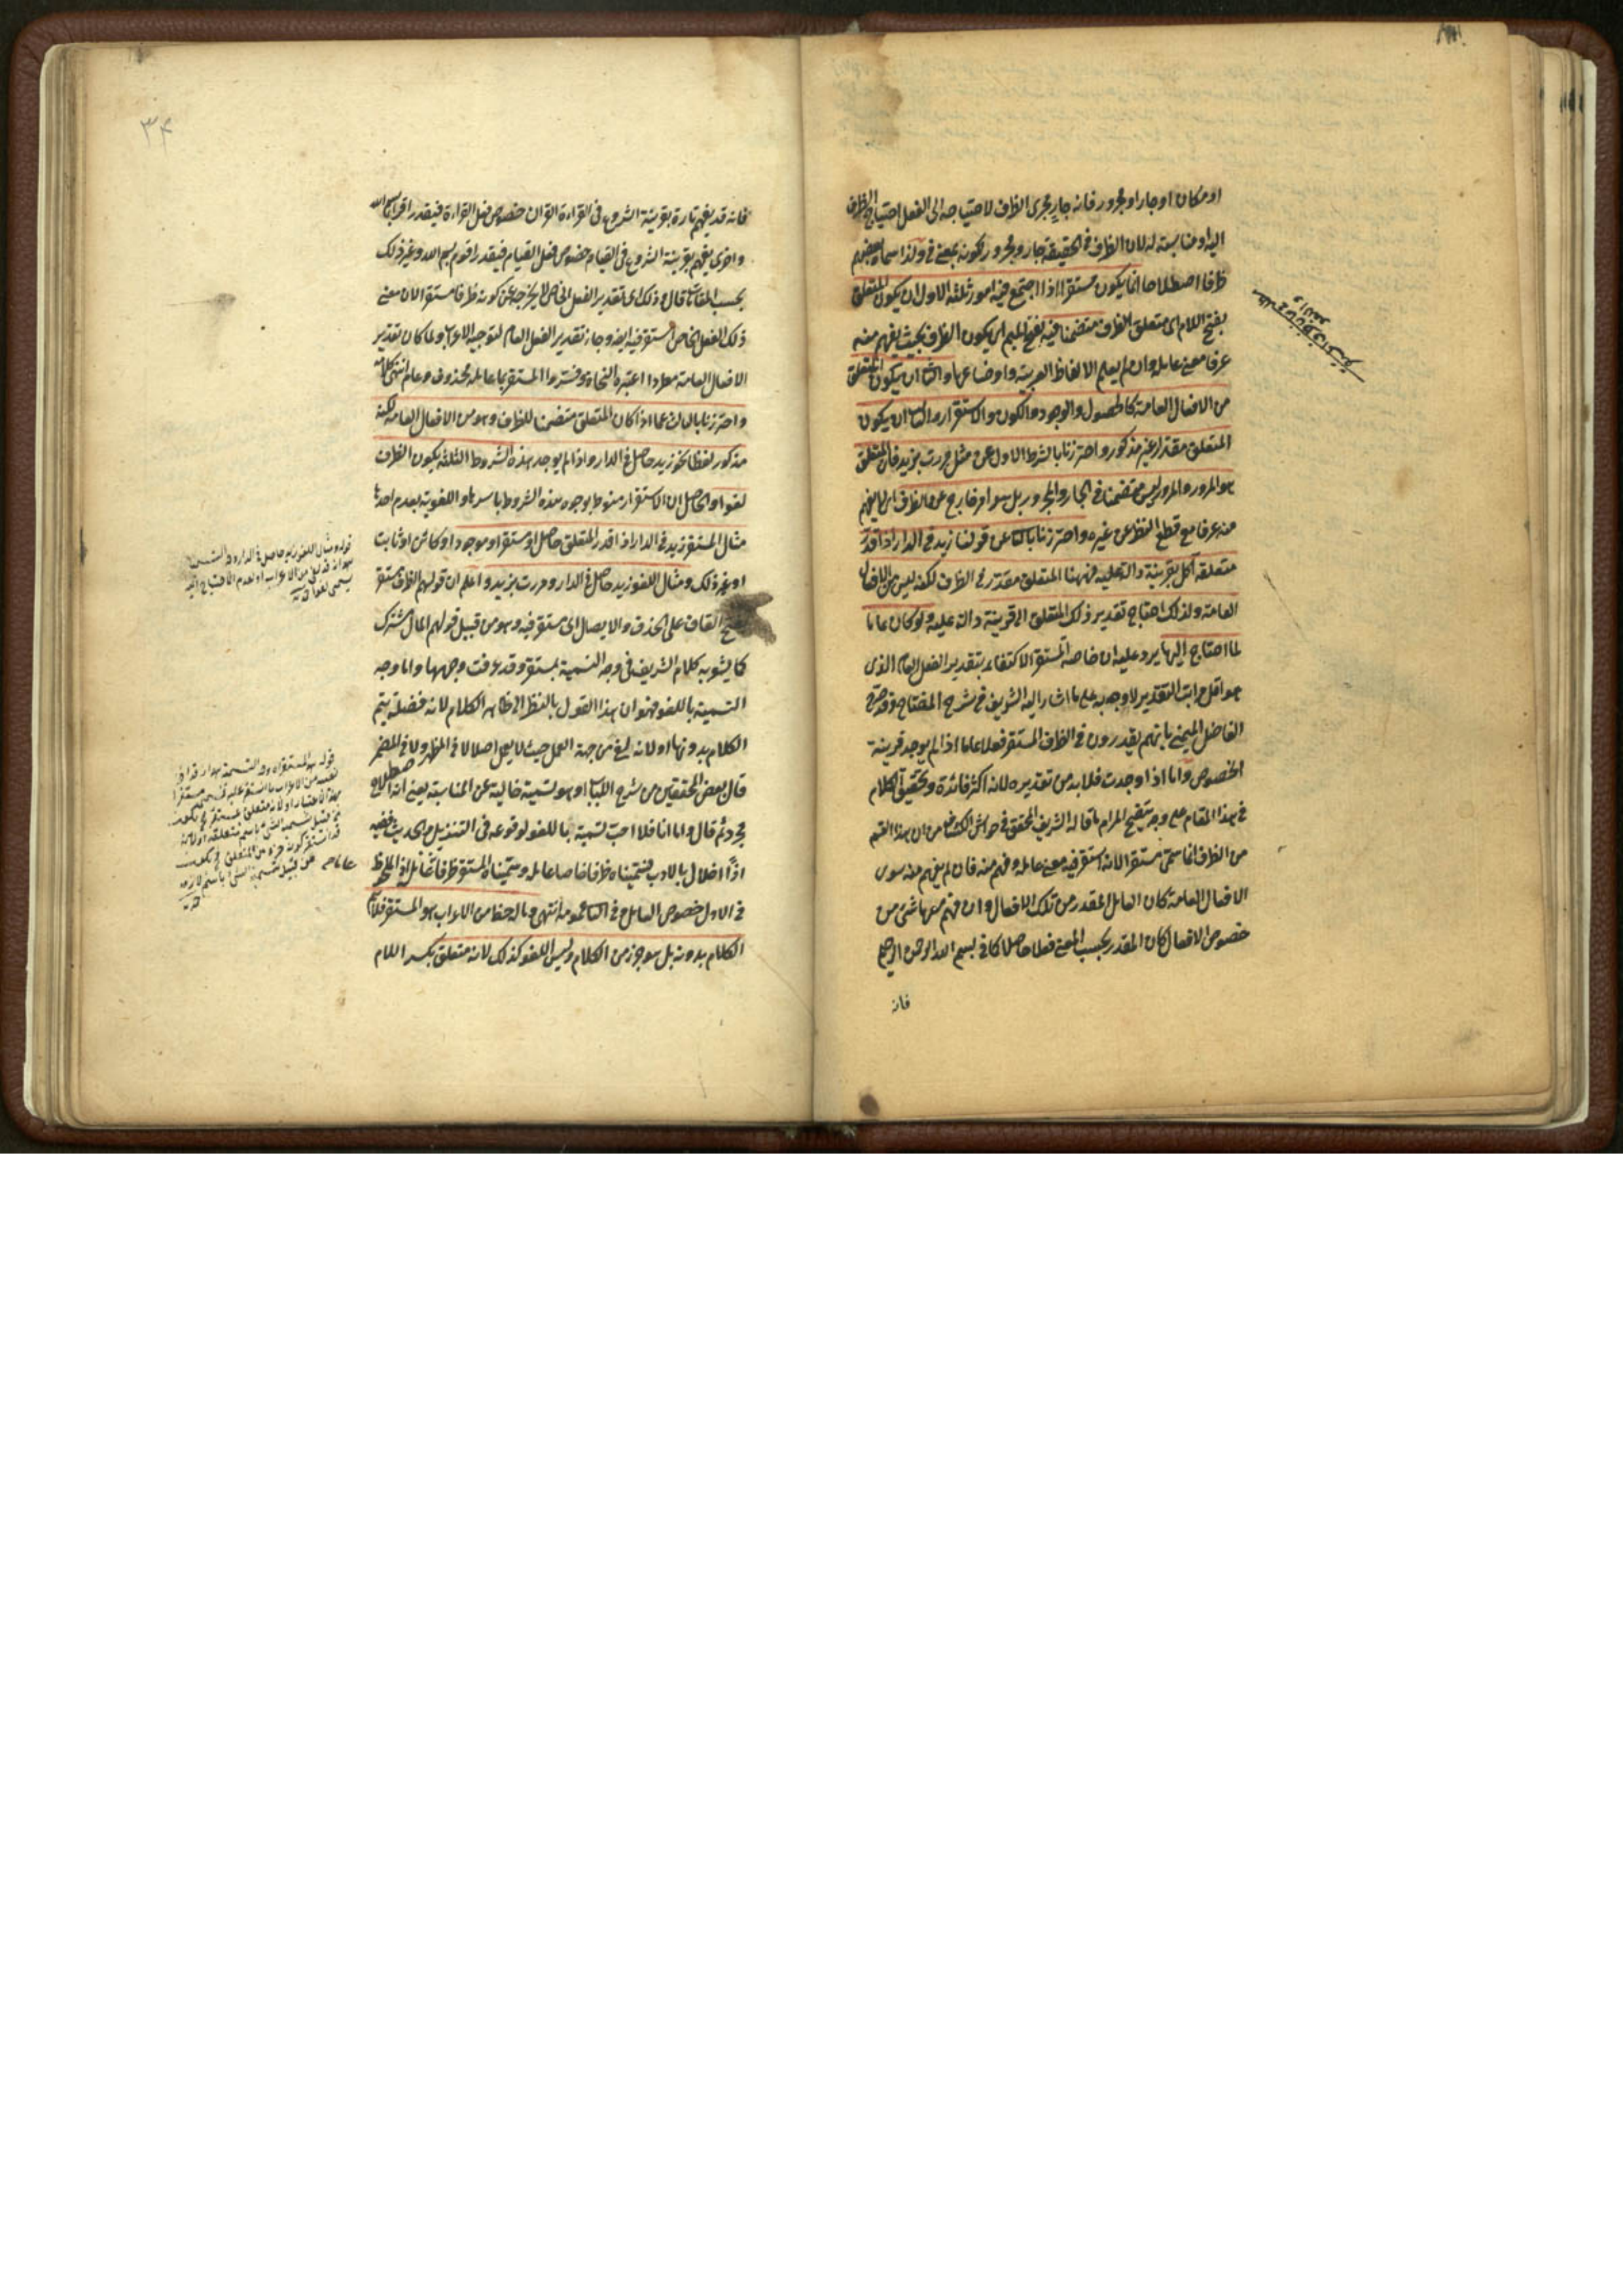 او مكان او جار او مجرور فانه جار مجرى الظرف لاحتياجه الى الفعل احتياج الظرف
اليه او مناسبته له لان الظرف فى الحقيقة جار ومجرور لكونه بمعنى فى ولذا سماه بعضهم
ظرفا اصطلاحا انما يكون مستقرا اذا اجتمع فيه امور ثلثة الاول ان يكون المتعلق
بفتح اللام اى متعلق الظرف متضمنا فيه بفتح الميم اى يكون الظرف بحيث يفهم منه
عرفا معنى عامله وان لم يعلم الالفاظ العربية واوضاعها والثانى ان يكون المتعلق
من الافعال العامة كالحصول والوجود والكون والاستقرار والثالث ان يكون
المتعلق مقدرا غير مذكور واحترزنا بالشرط الاول عن مثل مررت بزيد فان المتعلق
هو المرور والمرور ليس متضمنا فى الجار والمجرور بل هو امر خارج عن الظرف اى لا يفهم
منه عرفا مع قطع النظر عن غيره واحترزنا بالثانى عن قولنا زيد فى الدار اذا قدر
متعلقه اكل بقرينة دالة عليه فههنا المتعلق مقدر فى الظرف لكنه ليس من الافعال
العامة ولذلك احتاج تقدير ذلك المتعلق الى قرينة دالة عليه ولو كان عاما
لما احتاج اليها يرد عليه ان خاصة المستقر الاكتفاء بتقدير الفعل العام الذى
هو اقل مراتب التقدير لا وجوبه على ما اشار اليه الشريف فى شرح المفتاح وقد صرح
الفاضل اليمنى بانهم يقدرون فى الظرف المستقر فعلا عاما اذا لم يوجد قرينة
الخصوص واما اذا وجدت فلا بد من تقديره لانه اكثر فائدة وتحقيق الكلام
فى هذا المقام على وجه يتضح المرام ما قاله الشريف المحقق فى حواشى الكشاف من ان هذا القسم
من الظرف انما سمى مستقرا لانه استقر فيه معنى عامله وفهم منه فان لم يفهم منه سوى
الافعال العامة كان العامل المقدر من تلك الافعال وان فهم معها شئ من
خصوص الافعال كان المقدر بحسب المعنى فعلا خاصا كما فى بسم الله الرحمن الرحيم
فانه
٣۴
فانه قد يفهم تارة بقرينة الشروع فى القراءة القران خصوص فعل القراءة فيقدر اقرأ بسم الله
واخرى يفهم بقرينة الشروع فى القيام خصوص فعل القيام فيقدر اقوم بسم الله وغير ذلك
بحسب المقامات قال وذلك اى تقدير الفعل الخاص لا يخرجه عن كونه ظرفا مستقرا لان معنى
ذلك الفعل الخاص استقر فيه ايضا وجاز تقدير الفعل العام لتوجيه الاعراب ولما كان تقدير
الافعال العامة مطردا اعتبره النحاة وفسروا المستقر بما عامله محذوف وعام انتهى كلامه
واحترزنا بالثالث عما اذا كان المتعلق متضمنا للظرف وهو من الافعال العامة لكنه
مذكور لفظا نحو زيد حاصل فى الدار واذا لم يوجد هذه الشروط الثلثة يكون الظرف
لغوا والحاصل ان الاستقرار منوط بوجود هذه الشروط باسرها واللغوية بعدم احدها
مثال المستقر زيد فى الدار اذا قدر المتعلق حاصل او مستقر او موجود او كائن او ثابت
او غير ذلك ومثال اللغو زيد حاصل فى الدار ومررت بزيد واعلم ان قولهم الظرف مستقر
بفتح القاف على الحذف والايصال اى مستقر فيه وهو من قبيل قولهم المال مشترك
كما يشعر به كلام الشريف فى وجه التسمية بمستقر وقد عرفت وجهها واما وجه
التسمية باللغو فهو ان هذا القول بالنظر الى ظاهر الكلام لانه فضلة يتم
الكلام بدونها او لانه لغى من جهة العمل حيث لا يعمل اصلا لا فى المظهر ولا فى المضمر
قال بعض المحققين من شرح اللباب او هو تسمية خالية عن المناسبة يعنى انه اصطلاح
مجرد ثم قال واما انا فلا احب تسمية باللغو لوقوعه فى التنزيل والحديث ففيه
اذًا اخلال بالادب فسميناه ظرفا خاصا عامله وسميناه المستقر ظرفا عاما عامله اذ الملحوظ
فى الاول خصوص العامل وفى الثانى عمومه انتهى وماله حظ من الاعراب هو المستقر فلا يتم
الكلام بدونه بل هو جزء من الكلام وليس اللغو كذلك لانه متعلق بكسر اللام
قوله ومثال اللغو زيد حاصل فى الدار